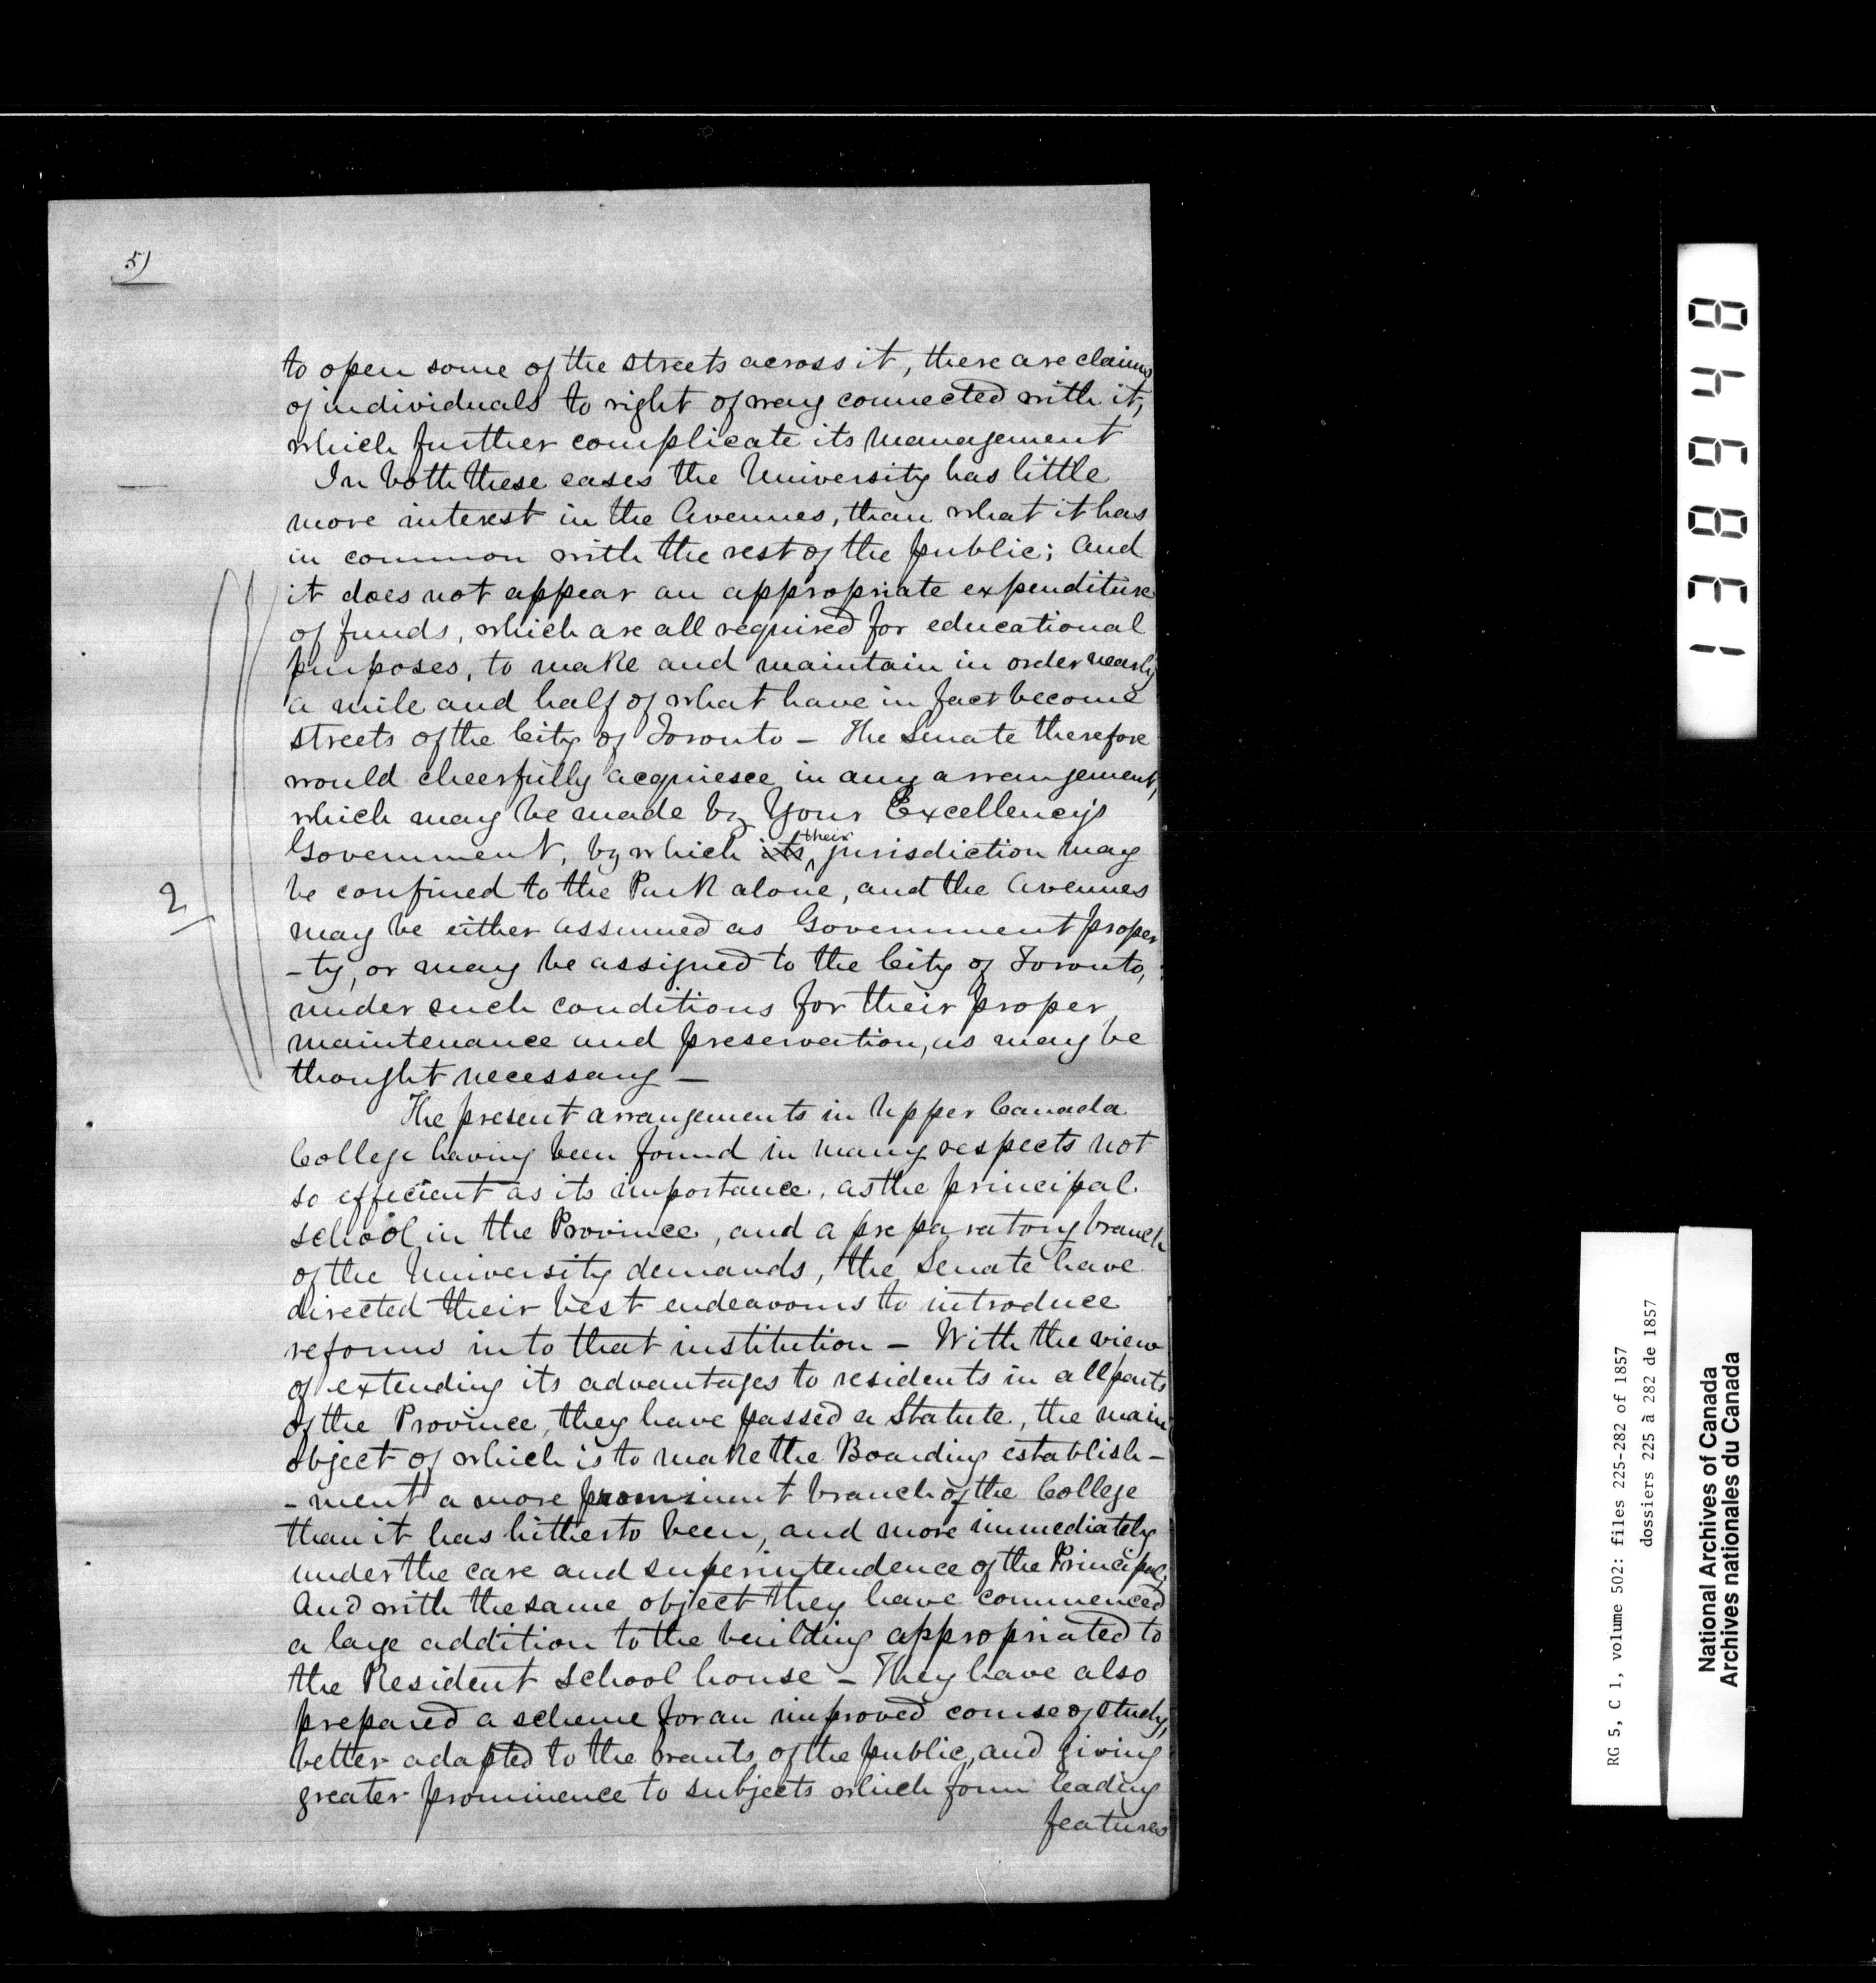 5)
to open some of the streets across it, there are claims
of individuals to right of way connected with it,
which further complicate its management
In both these cases the University has little
more interest in the Avenues, than what it has
in common with the rest of the public; and
it does not appear an appropriate expenditure
of funds, which are all required for educational
purposes, to make and maintain in order nearly
a mile and half of what have in fact become
streets of the City of Toronto – The Senate therefore
would cheerfully acquiesce in any arrangement,
which may be made by Your Excellency's
Government, by which its their jurisdiction may
2
be confined to the Park alone, and the avenues
may be either assumed as Government proper
-ty, or may be assigned to the City of Toronto,
under such conditions for their proper
maintenance and preservation, as may be
thought necessary –
The present arrangements in Upper Canada
College having been found in many respects not
so efficient as its importance, as the principal
school in the Province, and a preparatory branch
of the University demands, the Senate have
directed their best endeavours to introduce
reforms into that institution – With the view
of extending its advantages to residents in all parts
of the Province, they have passed a Statute, the main
object of which is to make the Boarding establish-
-ment a more prominent branch of the College
than it has hitherto been, and more immediately
under the care and superintendence of the Principal;
And with the same object they have commenced
a large addition to the building appropriated to
the Resident School house – They have also
prepared a scheme for an improved course of study,
better adapted to the wants of the public, and giving
greater prominence to subjects which form leading
features
138948
RG 5, C 1, volume 502: files 225-282 of 1857
dossiers 225 à 282 de 1857
National Archives of Canada
Archives nationales du Canada